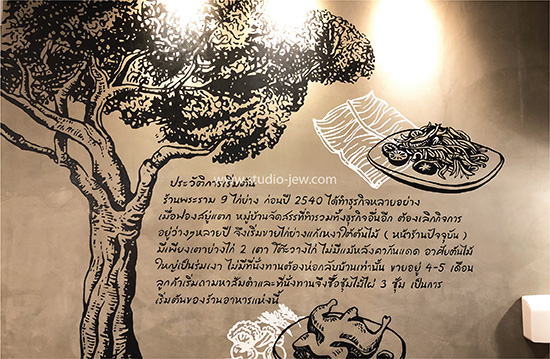 www.studio-jew.com
ประวัติการเริ่มต้น
ร้านพระราม 9 ไก่ย่าง ก่อนปี 2540 ได้ทำธุรกิจหลายอย่าง
เมื่อฟองสบู่แตก หมู่บ้านจัดสรรที่ทำรวมทั้งธุรกิจอื่นอีก ต้องเลิกกิจการ
อยู่ว่างๆหลายปี จึงเริ่มขายไก่ย่างแก้เหงาใต้ต้นไม้ ( หน้าร้านปัจจุบัน )
มีเพียงเตาย่างไก่ 2 เตา โต๊ะวางไก่ ไม่มีแม้หลังคากันแดด อาศัยต้นไม้
ใหญ่เป็นร่มเงา ไม่มีที่นั่งทานต้องห่อกลับบ้านเท่านั้น ขายอยู่ 4-5 เดือน
ลูกค้าเริ่มถามหาส้มตำและที่นั่งทานจึงซื้อซุ้มไม้ไผ่ 3 ซุ้ม เป็นการ
เริ่มต้นของร้านอาหารแห่งนี้